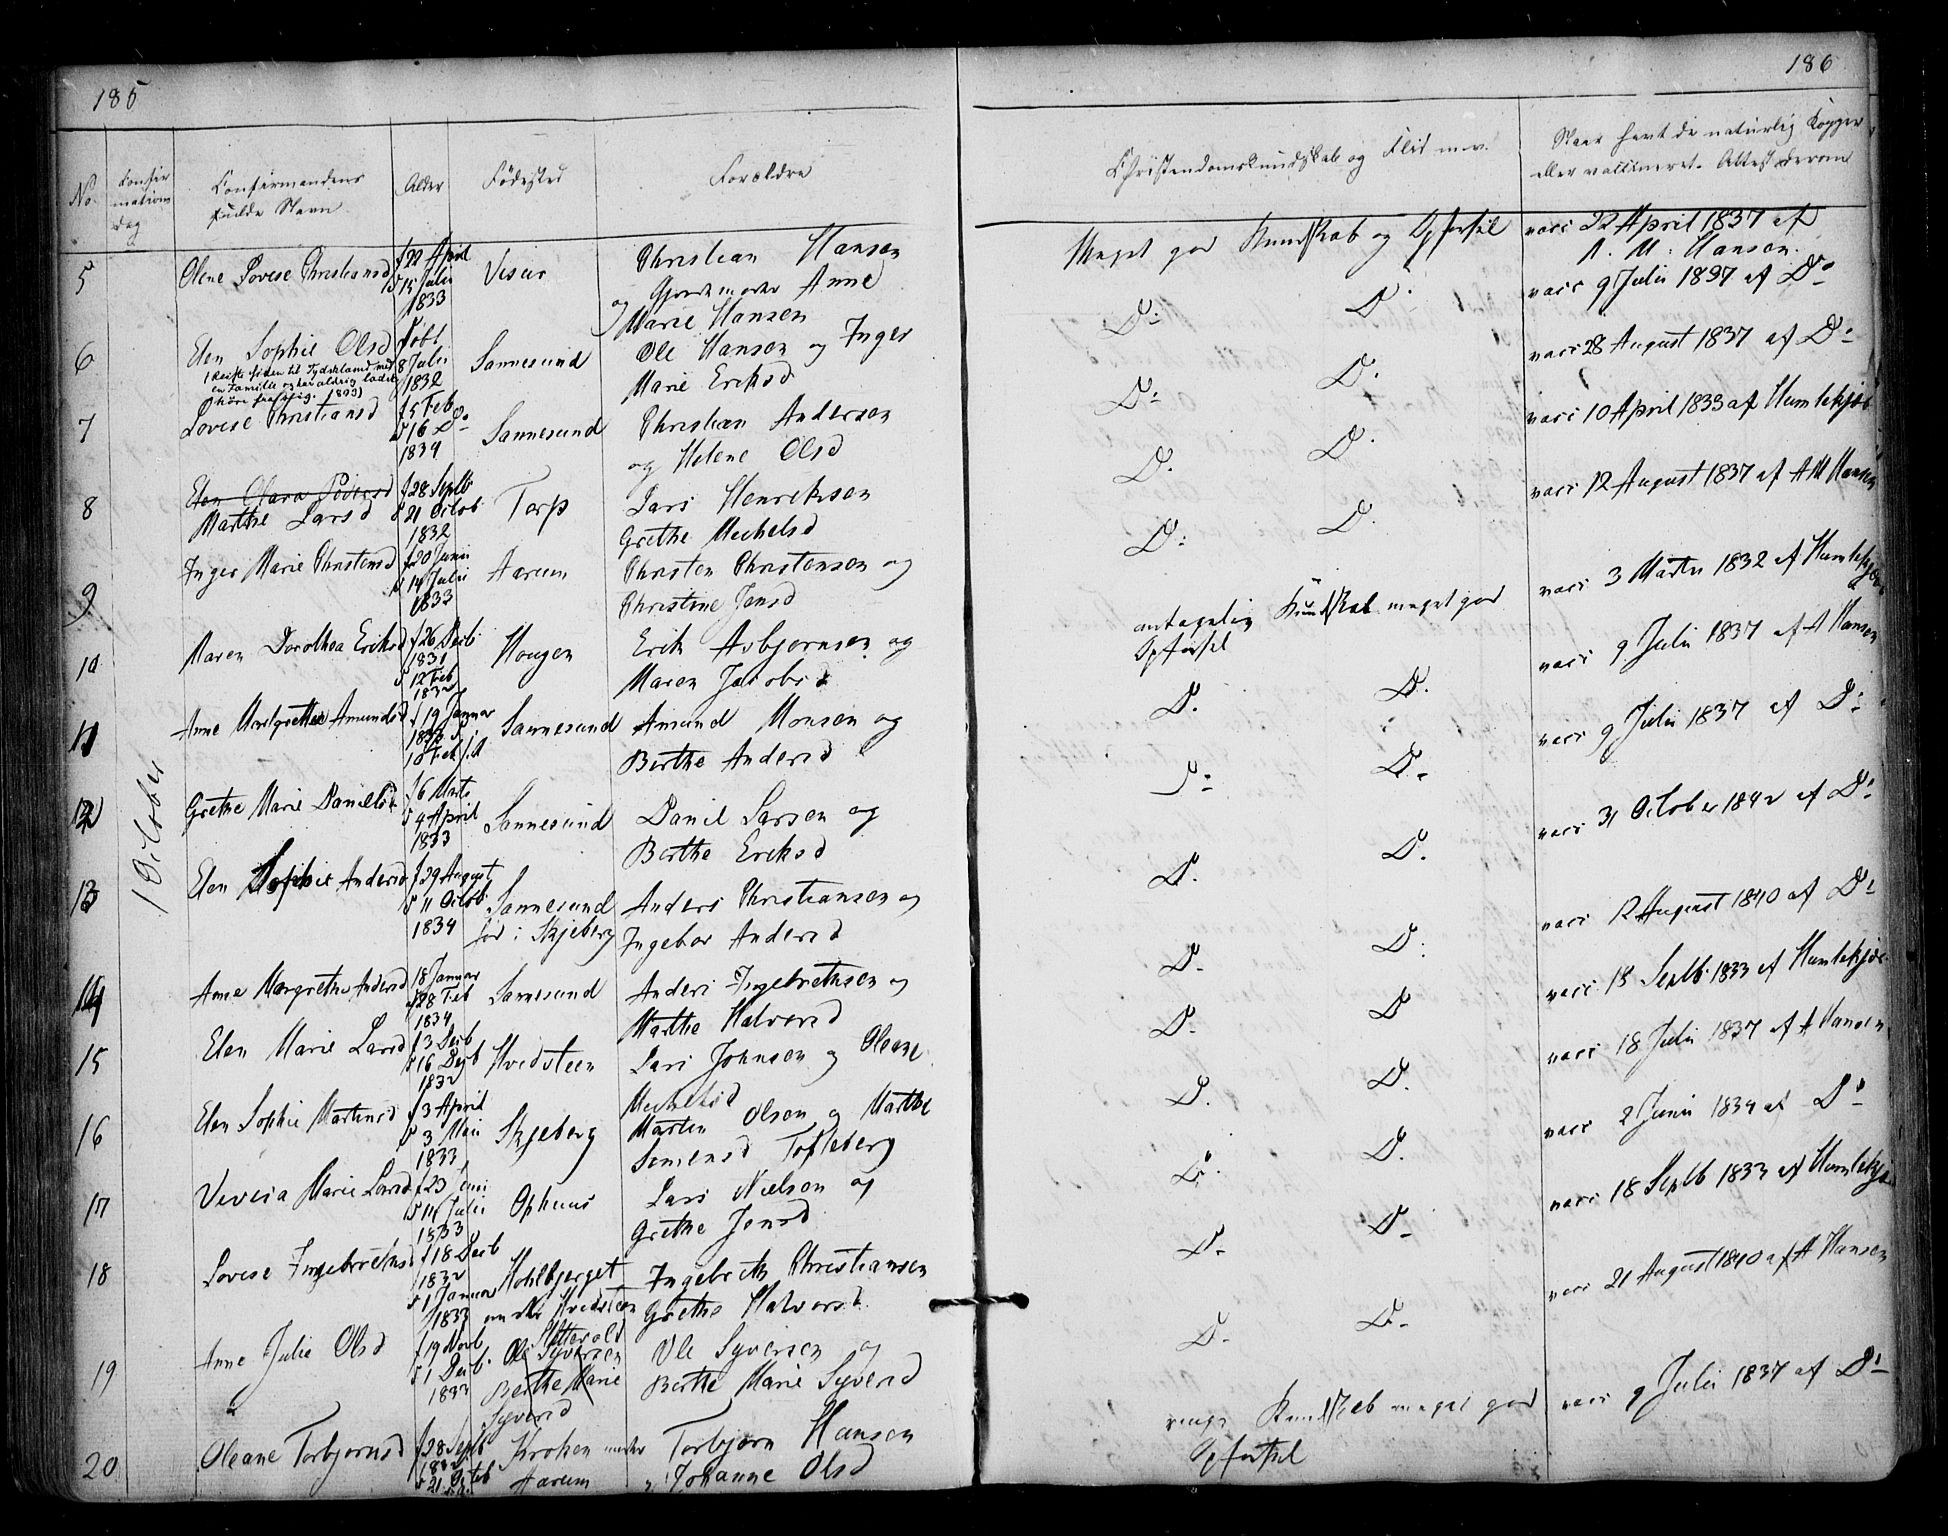 185
No.
Confir
mations
dag
Confirmandens
fulde Navn
Alder
Fødested
Forældre
5
Olene Lovise Christiansd
f 22 April
d 15 Julii
1833
Viseur
Christian Hansen
og Gjordemoder Anne
Marie Hansen
6
Elen Sophie Olsd
(Reiste siden til Tydskland med
en Familie og har aldrig ladet
høre fra sig. 1893)
født
8 Julii
1832
Sannesund
Ole Hansen og Inger
Marie Eriksd
7
Lovise Christiansd
f 5 Feb
d 16 Do
1834
Sannesund
Christian Andersen
og Helene Olsd
8
Elen Olava Pedersd
Marthe Larsd
f 28 Septb
d 21 Octob
1832
Torp
Lars Henriksen
Grethe Michelsd
9
Inger Marie Christensd
f 20 Junii
d 14 Julii
1833
Aarum
Christen Christensen og
Christine Jensd
10
Maren Dorothea Eriksd
f 26 Decb
1831
d 12 Feb
1832
Hougen
Erik Asbjørnsen og
Maren Jacobsd
11
Anne Margrethe Amundsd
f 19 Januar
10 Feb
Sannesund
Amund Monsen og
Berthe Andersd
1 October
12
Grethe Marie Danielsd
f 6 Marts
d 4 April
1833
Sannesund
Daniel Larsen og
Berthe Eriksd
13
Elen Sophie Andersd
f 29 August
d 11 Octob
1834
Sannesund
før i Skjeberg
Anders Christiansen og
Ingebor Andersd
14
Anne Margrethe Andersd
18 Januar
28 Feb
1834
Sannesund
Anders Ingebrethsen og
Marthe Halvorsd
15
Elen Marie Larsd
f 3 Decb
d 16 Decb
1832
Hvidsteen
Lars Johnsen og Oleane
Michelsd
16
Elen Sophie Martinsd
f 3 April
d 3 Maii
1833
Skjeberg
Martin Olsen og Marthe
Simensd Tofteberg
17
Vivica Marie Larsd
f 23 Juni
d 14 Julii
1833
Ophuus
Lars Nielsen og
Grethe Jensd
18
Lovise Ingebrethsd
f 18 Decb
1832
d 1 Januar
1833
Hohlbjerget
under Hvidsteen
Ingebreth Christiansen
Grethe Halvorsd
19
Anne Julie Olsd
f 19 Novb
d 1 Decb
1832
Ole Syversen
Berthe Marie
Syversd
Ole Syversen og
Berthe Marie Syversd
20
Oleane Torbjørnsd
f 28 Septb
1832
d 21 Octob
Kroken under
Aarum
Torbjørn Hansen
Johanne Olsd
186
Christendomskundskab og Flid m.v.
Naar havt de naturlig Kopper
eller vaccineret. Attest derom
Meget god Kundskab og Opførsel
vacc 22 April 1837 af
A. M. Hansen.
Do Do
vacc 9 Julii 1837 af Do
Do Do
vacc 28 August 1837 af Do
Do Do
vacc 10 April 1833 af Humlekjær
Do Do
vacc 12 August 1837 af AM Hansen
antagelig Kundskab meget god
Opførsel
vacc 3 Marts 1832 af Humlekjær
Do Do
vacc 9 Julii 1837 af A Hansen
Do Do
vacc 9 Julii 1837 af Do
Do Do
vacc 31 October 1842 af Do
Do Do
vacc 12 August 1840 af Do
Do Do
vacc 18 Septb 1833 af Humlekjær
Do Do
vacc 18 Julii 1837 af A Hansen
Do Do
vacc 2 Junii 1834 af Do
Do Do
vacc 18 Septb 1833 af Humlekjær
Do Do
vacc 21 August 1840 af A Hansen
ringe Kundskab meget god
Opførsel
vacc 9 Julii 1837 af Do